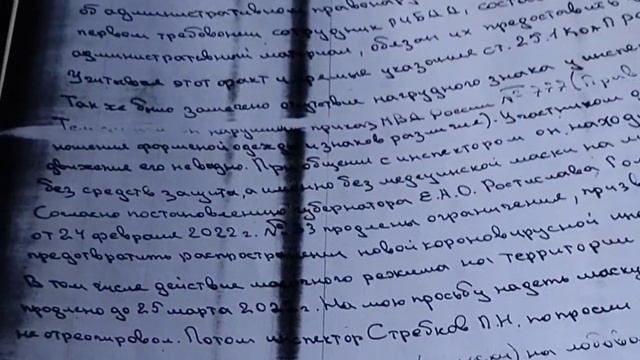 об административном правонару
первом требовании сотрудник ГИБДД, соста
административный материал, обязан их предоставить
Учитывая этот факт и прямые указания ст. 25.1 КоАП Р
Так же было замечено отсутствие нагрудного знака у инспе
нарушил приказ МВД России № 777 (Прав
ношения форменой одежды и знаков различия). Участником д
движения его не видно. При общении с инспектором он, наход
без средств защита, а именно без медецинской маски на л
Согласно постановлению губернатора Е.А.О. Ростислава, Гол
от 24 февраля 2022 г. № 33 продлены ограничения, призв
предотвратить распространении новой короновирусной ин
В том числе действие масочного режима на территории
продлено до 25 марта 202 г. На мою просьбу надеть маску
не отреогировал. Потом инспектор Стребков П.Н. попросил
на лобово